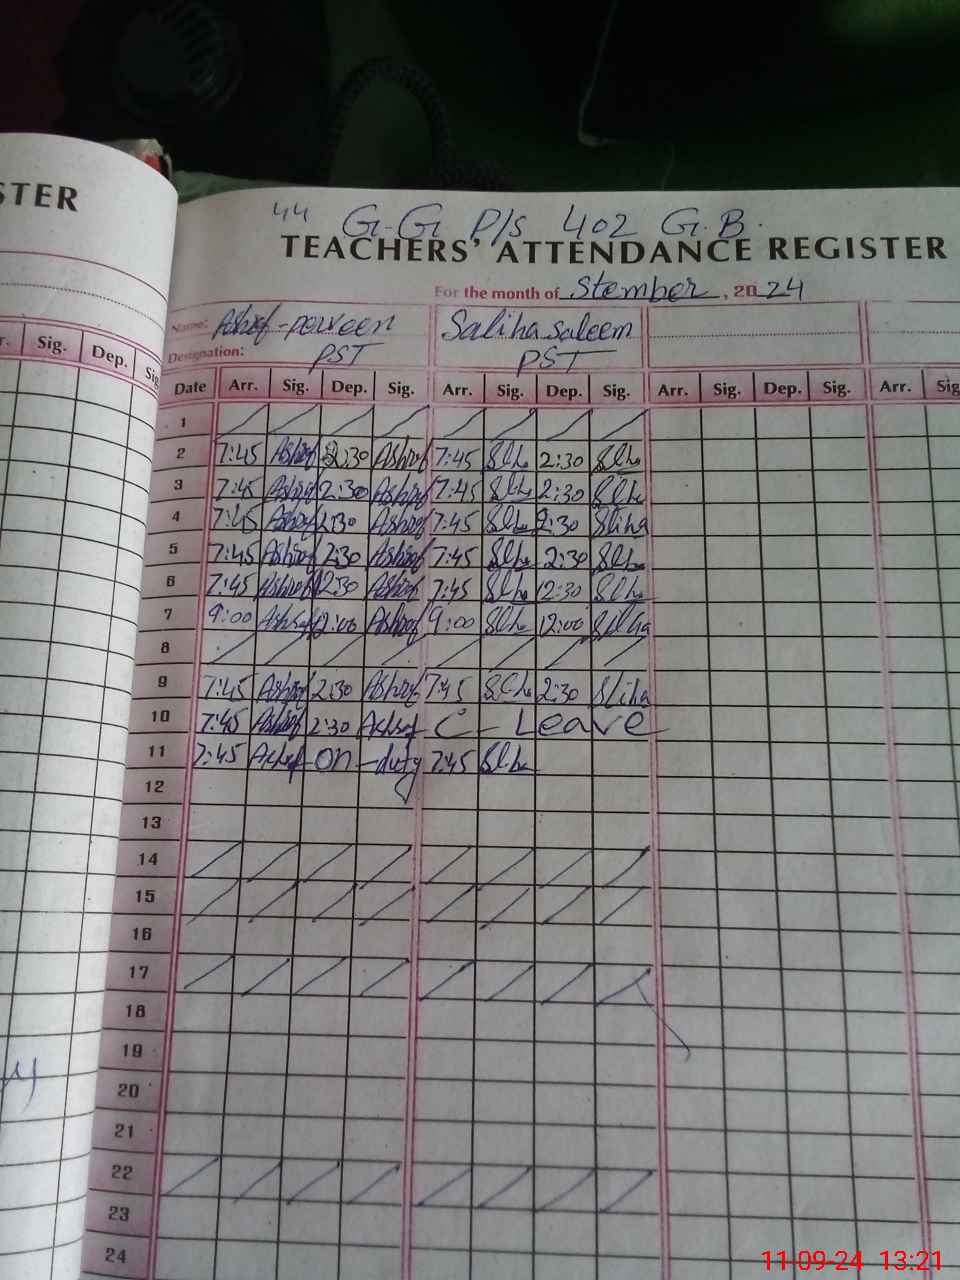 STER
44 G.G P/S 402 G.B.
TEACHERS' ATTENDANCE REGISTER
For the month of Stember, 2024
Name: Ashraf-parveen Saliha saleem
Designation: PST PST
r. Sig. Dep. Sig
Date Arr. Sig. Dep. Sig. Arr. Sig. Dep. Sig. Arr. Sig. Dep. Sig. Arr. Sig
1
2 7:45 Ashraf 2:30 Ashraf 7:45 Slh 2:30 Slh
3 7:45 Ashraf 2:30 Ashraf 7:45 Slh 2:30 Slh
4 7:45 Ashraf 2:30 Ashraf 7:45 Slh 2:30 Sliha
5 7:45 Ashraf 2:30 Ashraf 7:45 Slh 2:30 Slh
6 7:45 Ashraf 12:30 Ashraf 7:45 Slh 12:30 Slh
7 9:00 Ashraf 12:00 Ashraf 9:00 Slh 12:00 Sliha
8
9 7:45 Ashraf 2:30 Ashraf 7:45 Slh 2:30 Sliha
10 7:45 Ashraf 2:30 Ashraf C - Leave
11 7:45 Ashraf on - duty 7:45 Slh
12
13
14
15
16
17
18
19
20
21
22
23
24
11-09-24 13:21